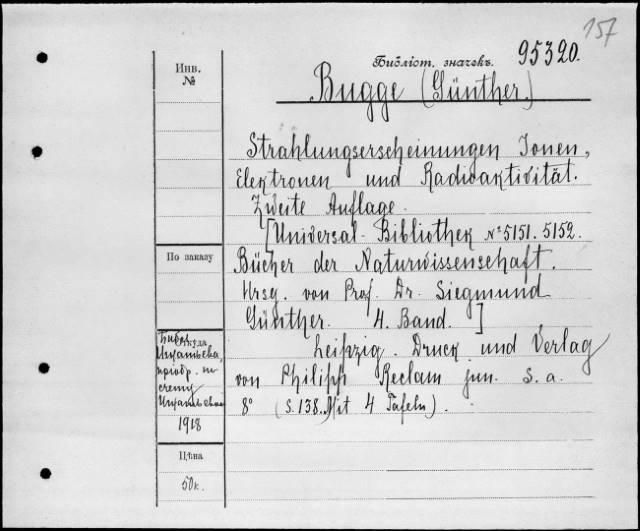 157
Библіот. значекъ. 95320.
Bugge (Günther.)
Инв.
№
Strahlungserscheinungen Ionen,
Elektronen und Radioaktivität.
Zweite Auflage.
[Universal-Bibliothek № 5151. 5152.
По заказу
Bücher der Naturwissenschaft.
Hrsg. von Prof. Dr. Siegmund
Günther. 4. Band.]
Откуда
Leipzig. Druck und Verlag
von Philipp Reclam jun. s. a.
8° (S. 138. Mit 4 Tafeln).
1918
Цѣна
50к.